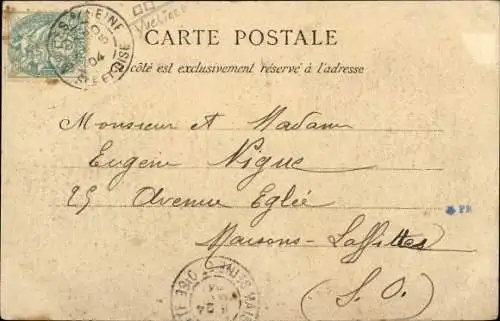 CARTE POSTALE
côté est exclusivement réservé à l'adresse
Monsieur et Madame
Eugène Vigue
25 Avenue Eglée
Maisons-Laffittes
(S. O.)